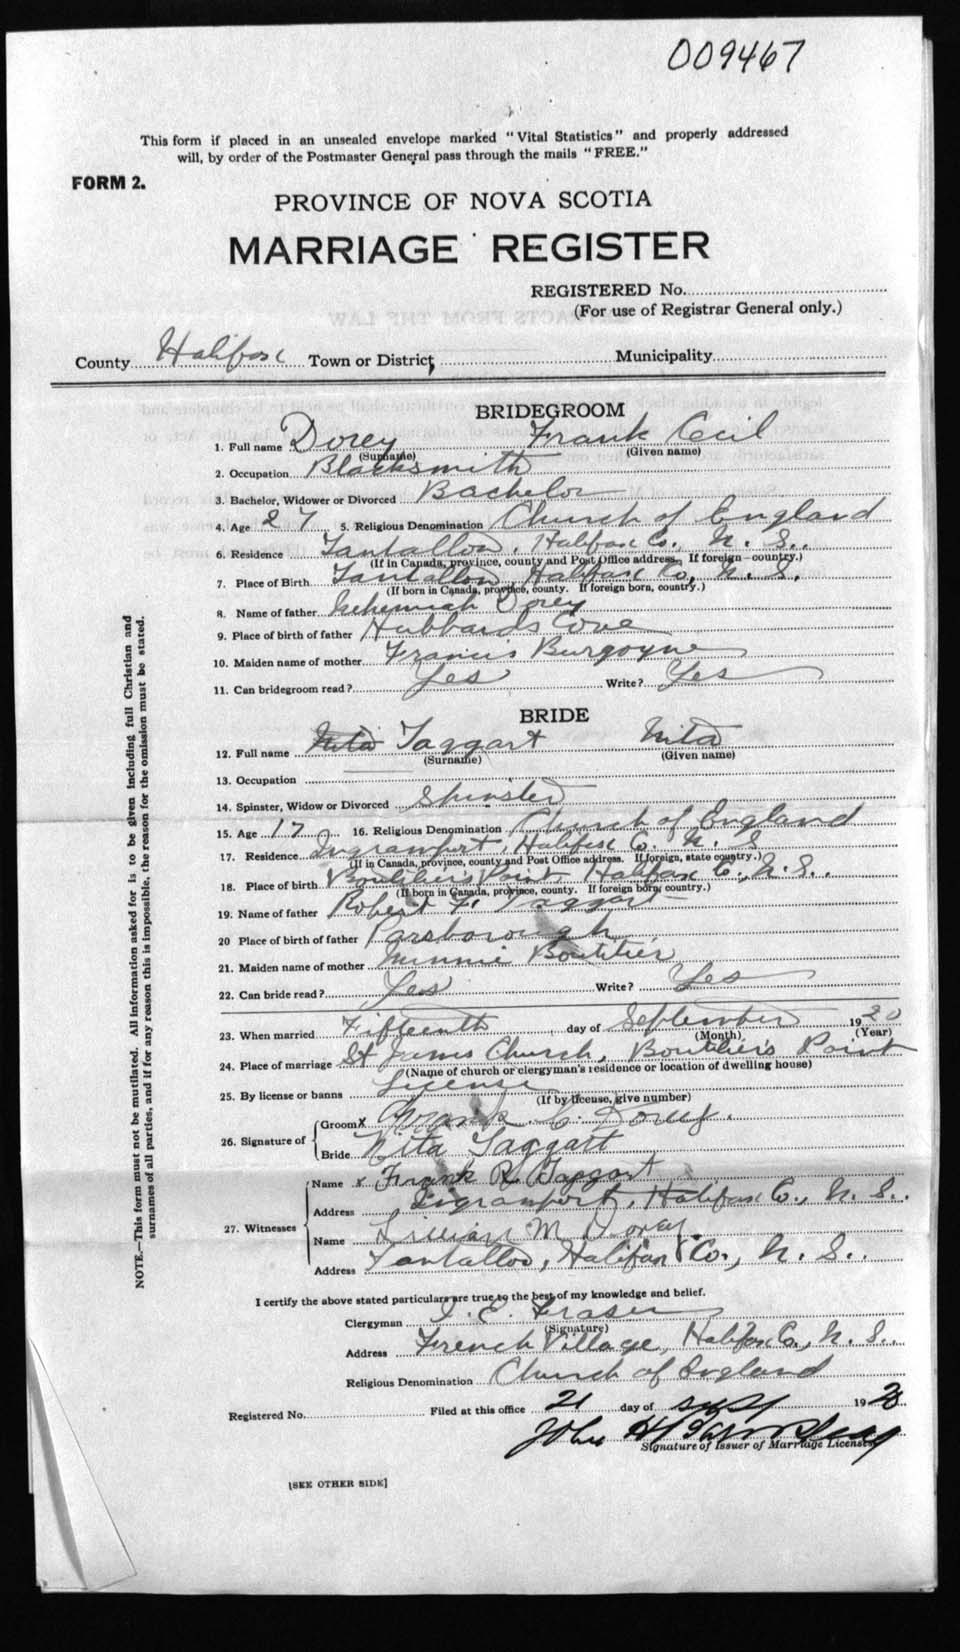 009467
This form if placed in an unsealed envelope marked "Vital Statistics" and properly addressed
will, by order of the Postmaster General pass through the mails "FREE."
FORM 2.
PROVINCE OF NOVA SCOTIA
MARRIAGE REGISTER
REGISTERED No.
(For use of Registrar General only.)
County Halifax Town or District Municipality
BRIDEGROOM
1. Full name Dorey Frank Cecil
(Surname) (Given name)
2. Occupation Blacksmith
3. Bachelor, Widower or Divorced Bachelor
4. Age 27 5. Religious Denomination Church of England
6. Residence Tantallon, Halifax Co., N. S.
(If in Canada, province, county and Post Office address. If foreign country.)
7. Place of Birth Tantallon, Halifax Co, N. S.
(If born in Canada, province, county. If foreign born, country.)
8. Name of father Nehemiah Dorey
9. Place of birth of father Hubbards Cove
10. Maiden name of mother Francis Burgoyne
11. Can bridegroom read? Yes Write? Yes
BRIDE
12. Full name Nita Taggart Nita
(Surname) (Given name)
13. Occupation
14. Spinster, Widow or Divorced Spinster
15. Age 17 16. Religious Denomination Church of England
17. Residence Ingramport, Halifax Co. N. S
(If in Canada, province, county and Post Office address. If foreign, state country.)
18. Place of birth Boutiliers Point, Halifax C., N. S.
(If born in Canada, province, county. If foreign born, country.)
19. Name of father Robert F. Taggart
20 Place of birth of father Parsborough
21. Maiden name of mother Minnie Boutilier
22. Can bride read? Yes Write? Yes
23. When married Fifteenth day of September 1920
(Month) (Year)
24. Place of marriage St James Church, Boutilier's Point
(Name of church or clergyman's residence or location of dwelling house)
25. By license or banns License
(If by license, give number)
26. Signature of
Groom x Frank C. Dorey.
Bride Nita Taggart
27. Witnesses
Name x Frank R. Taggart
Address Ingramport, Halifax Co., N. S.
Name Lillian M. Dorey
Address Tantallon, Halifax Co., N. S.
I certify the above stated particulars are true to the best of my knowledge and belief.
Clergyman I. E. Fraser
(Signature)
Address French Village, Halifax Co., N. S.
Religious Denomination Church of England
Registered No. Filed at this office 21 day of Sept 1920
John H
Signature of Issuer of Marriage Licenses
[SEE OTHER SIDE]
NOTE.—This form must not be mutilated. All information asked for is to be given including full Christian and
surnames of all parties, and if for any reason this is impossible, the reason for the omission must be stated.